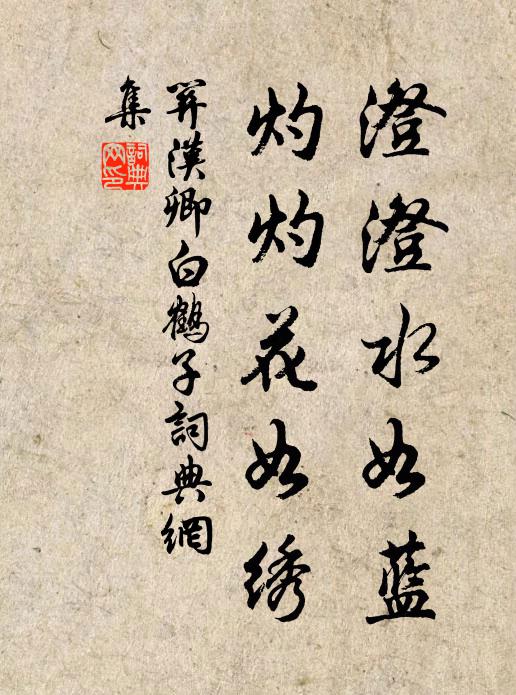 澄澄水如藍
灼灼花如绣
関漢卿白鶴子詞典網
集
詞典
网印